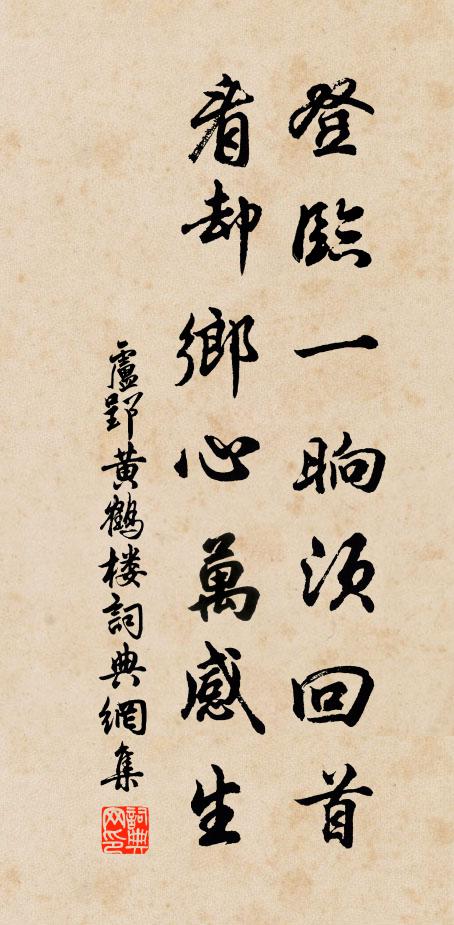 登臨一晌須回首
看却鄉心萬感生
盧郢黃鶴楼詞典網集
詞典网印